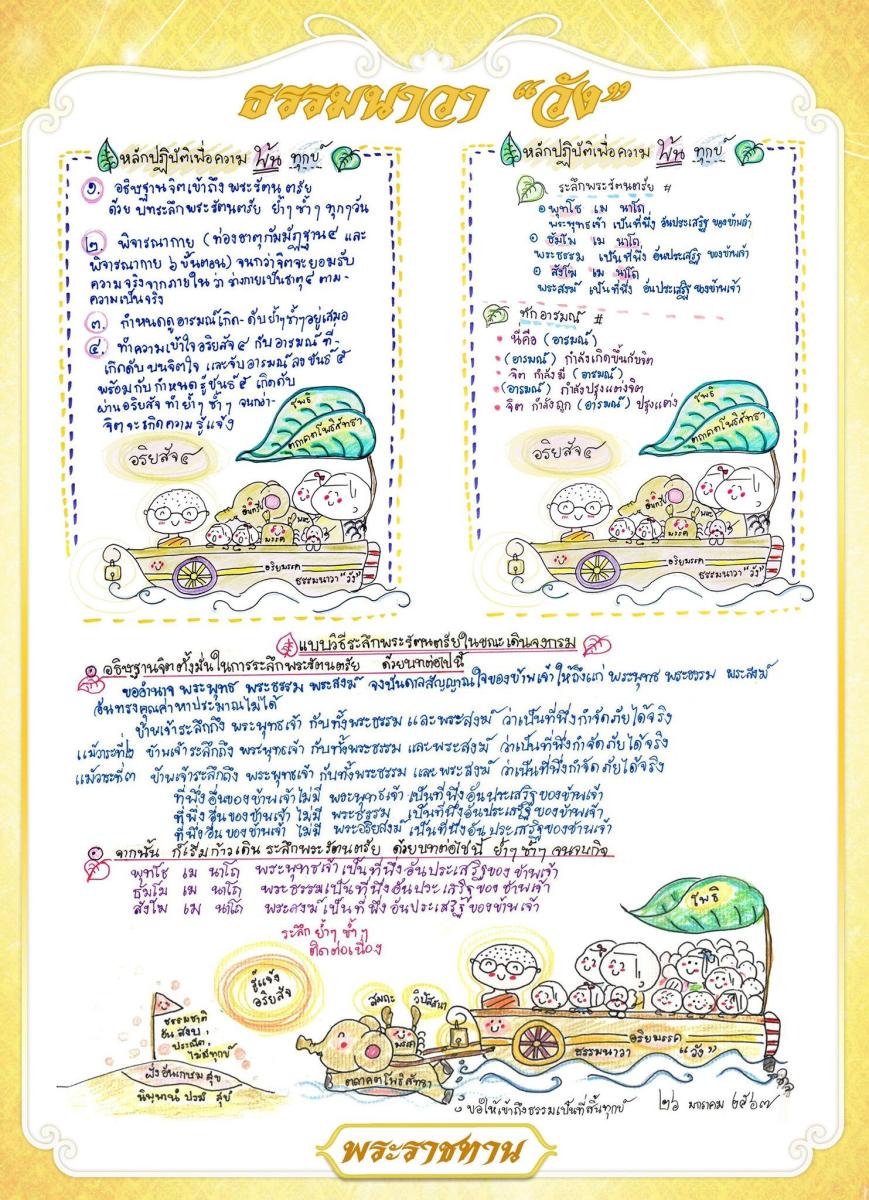 ธรรมนาวา “วัง”
หลักปฏิบัติเพื่อความ พ้น ทุกข์
๑. อธิษฐานจิตเข้าถึง พระรัตนตรัย
ด้วย บทระลึกพระรัตนตรัย ย้ำๆ ซ้ำๆ ทุกๆวัน
๒. พิจารณากาย (ท่องธาตุกัมมัฏฐาน๔ และ
พิจารณากาย ๖ ขั้นตอน) จนกว่าจิตจะยอมรับ
ความจริงจากภายในว่า ร่างกายเป็นธาตุ๔ ตาม-
ความเป็นจริง
๓. กำหนดดูอารมณ์เกิด-ดับย้ำๆซ้ำๆอยู่เสมอ
๔. ทำความเข้าใจอริยสัจ๔ กับอารมณ์ที่-
เกิดดับ บนจิตใจ และจับอารมณ์ลงขันธ์๕
พร้อมกับกำหนดรู้ขันธ์๕ เกิดดับ
ผ่านอริยสัจ ทำย้ำๆ ซ้ำๆ จนกว่า-
จิตจะเกิดความรู้แจ้ง
โพธิ
ตถาคตโพธิสัทธา
อริยสัจ๔
อินทรีย์
พละ
มรรค
อริยมรรค
ธรรมนาวา “วัง”
หลักปฏิบัติเพื่อความ พ้น ทุกข์
ระลึกพระรัตนตรัย #
พุทโธ เม นาโถ
พระพุทธเจ้า เป็นที่พึ่ง อันประเสริฐ ของข้าพเจ้า
ธัมโม เม นาโถ
พระธรรม เป็นที่พึ่ง อันประเสริฐ ของข้าพเจ้า
สังโฆ เม นาโถ
พระสงฆ์ เป็นที่พึ่ง อันประเสริฐ ของข้าพเจ้า
ทักอารมณ์ #
• นี่คือ (อารมณ์)
• (อารมณ์) กำลังเกิดขึ้นกับจิต
• จิต กำลังมี (อารมณ์)
• (อารมณ์) กำลังปรุงแต่งจิต
• จิต กำลังถูก (อารมณ์) ปรุงแต่ง
โพธิ
ตถาคตโพธิสัทธา
อริยสัจ๔
อินทรีย์
พละ
มรรค
อริยมรรค
ธรรมนาวา “วัง”
แบบวิธีระลึกพระรัตนตรัยในขณะเดินจงกรม
อธิษฐานจิตตั้งมั่นในการระลึกพระรัตนตรัย ด้วยบทต่อไปนี้
ขออำนาจ พระพุทธ พระธรรม พระสงฆ์ จงบันดาลสัญญาณใจของข้าพเจ้าให้ถึงแก่ พระพุทธ พระธรรม พระสงฆ์
อันทรงคุณค่าหาประมาณไม่ได้
ข้าพเจ้าระลึกถึง พระพุทธเจ้า กับทั้งพระธรรม และพระสงฆ์ ว่าเป็นที่พึ่งกำจัดภัยได้จริง
แม้วาระที่๒ ข้าพเจ้าระลึกถึง พระพุทธเจ้า กับทั้งพระธรรม และพระสงฆ์ ว่าเป็นที่พึ่งกำจัดภัยได้จริง
แม้วาระที่๓ ข้าพเจ้าระลึกถึง พระพุทธเจ้า กับทั้งพระธรรม และพระสงฆ์ ว่าเป็นที่พึ่งกำจัดภัยได้จริง
ที่พึ่งอื่นของข้าพเจ้าไม่มี พระพุทธเจ้า เป็นที่พึ่งอันประเสริฐของข้าพเจ้า
ที่พึ่งอื่นของข้าพเจ้า ไม่มี พระธรรม เป็นที่พึ่งอันประเสริฐของข้าพเจ้า
ที่พึ่งอื่นของข้าพเจ้า ไม่มี พระอริยสงฆ์ เป็นที่พึ่งอันประเสริฐของข้าพเจ้า
จากนั้น ก็เริ่มก้าวเดิน ระลึกพระรัตนตรัย ด้วยบทต่อไปนี้ ย้ำๆ ซ้ำๆ จนจบกิจ
พุทโธ เม นาโถ พระพุทธเจ้าเป็นที่พึ่งอันประเสริฐของข้าพเจ้า
ธัมโม เม นาโถ พระธรรมเป็นที่พึ่งอันประเสริฐของข้าพเจ้า
สังโฆ เม นาโถ พระสงฆ์เป็นที่พึ่งอันประเสริฐของข้าพเจ้า
ระลึก ย้ำๆ ซ้ำๆ
ติดต่อเนื่อง
โพธิ
รู้แจ้ง
อริยสัจ
สมถะ
วิปัสสนา
มรรค
ธรรมชาติ
อันสงบ,
ประณีต,
ไม่มีทุกข์
ฝั่งอันเกษมสุข
นิพพานํ ปรมํ สุขํ
ตถาคตโพธิสัทธา
อริยมรรค
ธรรมนาวา “วัง”
ขอให้เข้าถึงธรรมเป็นที่สิ้นทุกข์
๒๖ มกราคม ๒๕๖๗
พระราชทาน